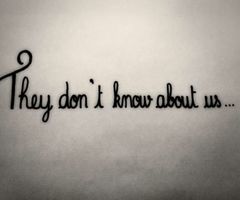 They don't know about us...